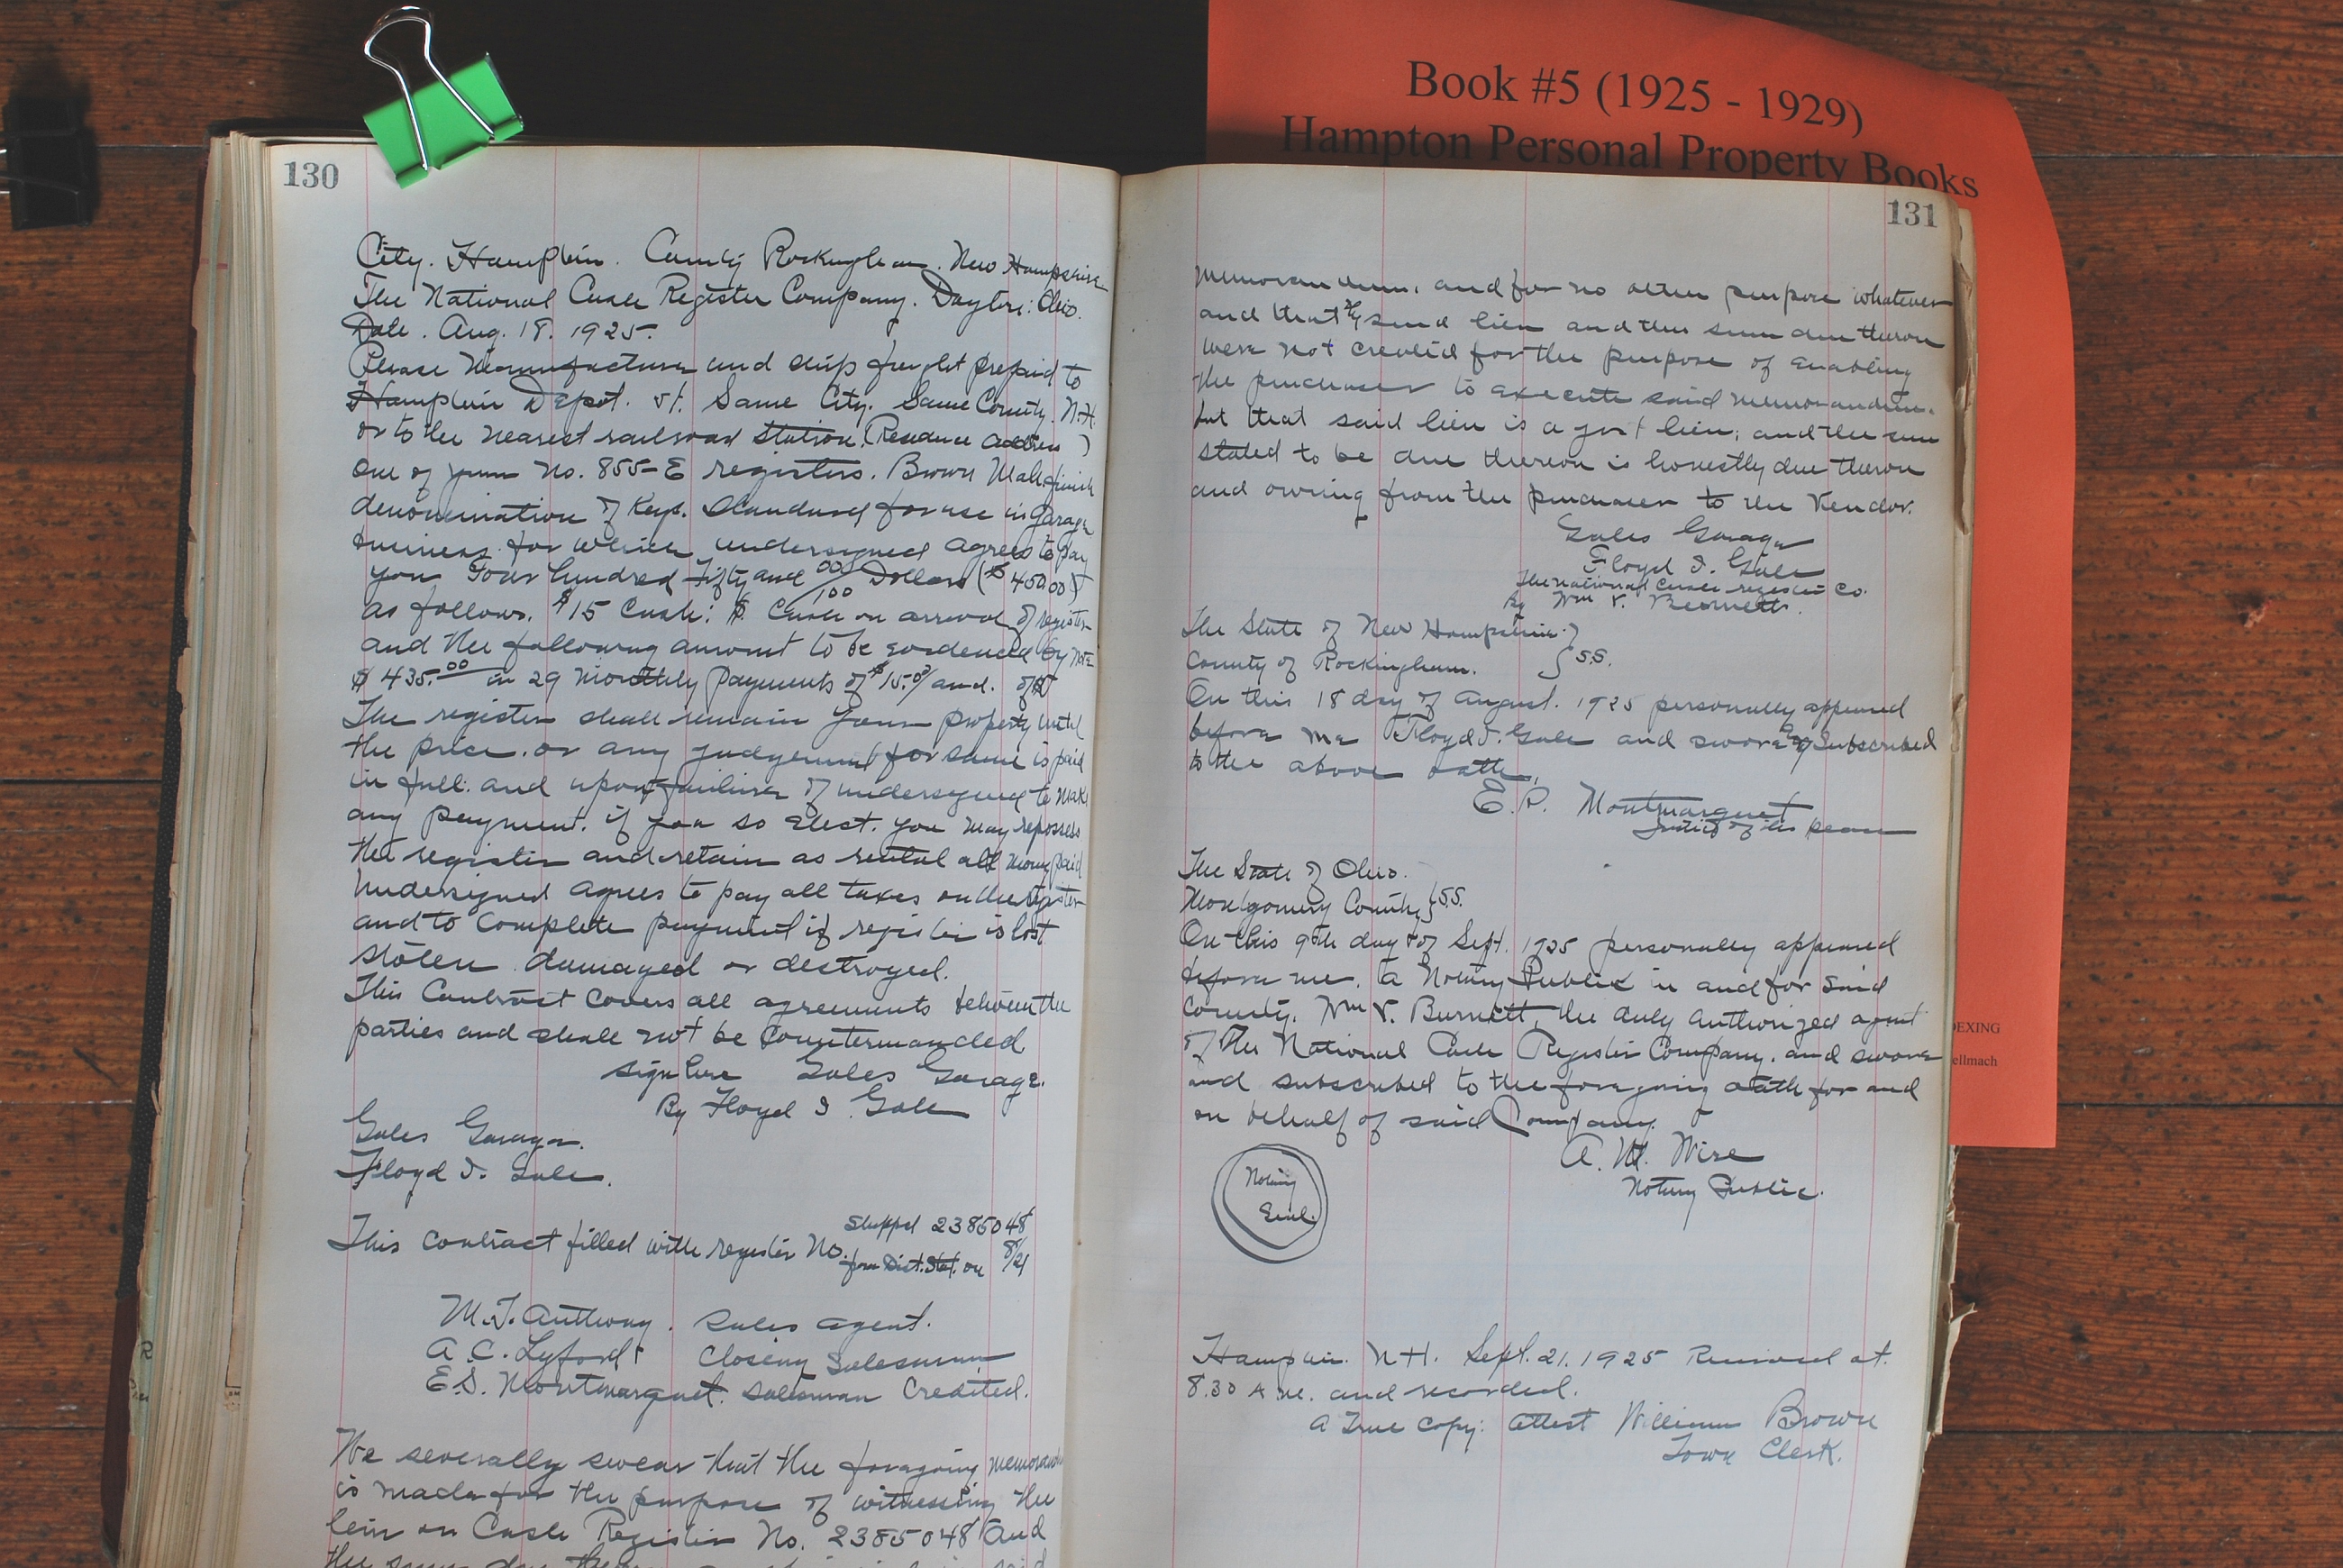 Book #5 (1925 - 1929)
Hampton Personal Property Books
130
City. Hampton. County Rockingham. New Hampshire
The National Cash Register Company. Dayton. Ohio.
Date. Aug. 18. 1925.
Please Manufacture and ship freight prepaid to
Hampton Depot. St. Same City. Same County. N.H.
or to the nearest railroad station. (Residence address )
One of your No. 855-E registers. Brown Mah. finish
denomination of Keys. Standard for use in Garage
business for which undersigned agrees to pay
you Four hundred Fifty and 00/100 Dollars ($450.00)
as follows. $15 Cash: $ Cash on arrival of register
and the following amount to be evidenced by note
$435.00 in 29 Monthly Payments of $15.00 and. of $
The register shall remain your property until
the price. or any judgement for same is paid
in full. and upon failure of undersigned to make
any payment. if you so elect. you may repossess
the register and retain as rental all money paid
Undersigned agrees to pay all taxes on the register
and to complete payment if register is lost
stolen damaged or destroyed.
This Contract covers all agreements between the
parties and shall not be Countermanded
Signature Gales Garage.
By Floyd I. Gale
Gales Garage.
Floyd I. Gale.
Shipped 2385048
This contract filled with register No.
from Dist. Stat. on 8/21
M.J. Anthony. Sales agent.
A. C. Lyford Closing Salesman
E.S. Montmarquet. Salesman Credited.
We severally swear that the foregoing memoranda
is made for the purpose of witnessing the
lein on Cash Register No. 2385048 and
131
memorandum. and for no other purpose whatever
and that said lien and the sum due theron
were not created for the purpose of enabling
the purchaser to execute said memorandum.
but that said lien is a just lien, and the sum
stated to be due thereon is honestly due theron
and owing from the purchaser to the Vendor.
Gales Garage
Floyd I. Gale
The National Cash register Co.
By Wm V. Burnett.
The State of New Hampshire }
County of Rockingham. } S.S.
On this 18 day of August. 1925 personally appeared
before me Floyd I. Gale and swore & Subscribed
to the above oath.
E. P. Montmarquet
Justice of the peace
The State of Ohio.
Montgomery County } S.S.
On this 9th day of Sept. 1925 personally appeared
before me. a Notary Public in and for Said
County. Wm V. Burnett, the duly authorized agent
of The National Cash Register Company. and swore
and subscribed to the foregoing oath for and
on behalf of said Company.
A. W. Wise
Notary Public.
Notary
Seal.
Hampton. N.H. Sept. 21. 1925 Received at.
8.30 A.M. and recorded.
A True Copy: Attest William Brown
Town Clerk.
DEXING
ellmach